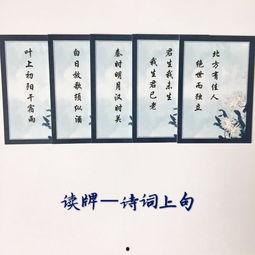 叶上初阳干宿雨
白日放歌须纵酒
秦时明月汉时关
君生我未生
我生君已老
北方有佳人
绝世而独立
读牌—诗词上句